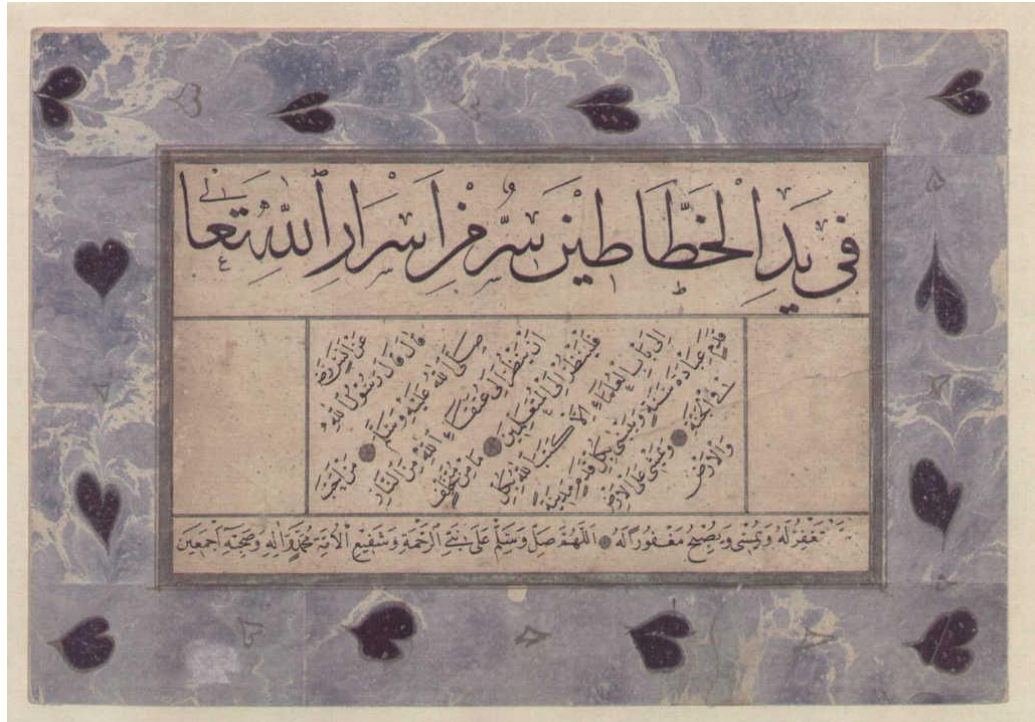 فِى يَدِ الْخَطَّاطِيْنَ سِرٌّ مِنْ اَسْرَارِ اللّٰهِ تَعَالٰى
عَنْ اَنَسٍ رض
قَالَ قَالَ رَسُوْلُ اللهِ
صَلَّى اللهُ عَلَيْهِ وَسَلَّمَ مَنْ اَحَبَّ
اَنْ يَنْظُرَ اِلٰى عُتَقَاءِ اللهِ مِنَ النَّارِ
فَلْيَنْظُرْ اِلَى الْمُتَعَلِّمِيْنَ مَا مِنْ مُتَعَلِّمٍ يَخْتَلِفُ
اِلٰى بَابِ الْعُلَمَاءِ اِلَّا كَتَبَ اللهُ بِكُلِّ
قَدَمٍ عِبَادَةَ سَنَةٍ وَيُبْنٰى بِكُلِّ قَدَمٍ مَدِيْنَةٌ
فِى الْجَنَّةِ وَيَمْشِى عَلَى الْاَرْضِ
وَالْاَرْضُ
تَسْتَغْفِرُ لَهُ وَيُمْسِى وَيُصْبِحُ مَغْفُورًا لَهُ اَللّٰهُمَّ صَلِّ وَسَلِّمْ عَلٰى نَبِىِّ الرَّحْمَةِ وَشَفِيْعِ الْاُمَّةِ مُحَمَّدٍ وَاٰلِهِ وَصَحْبِهِ اَجْمَعِيْنَ